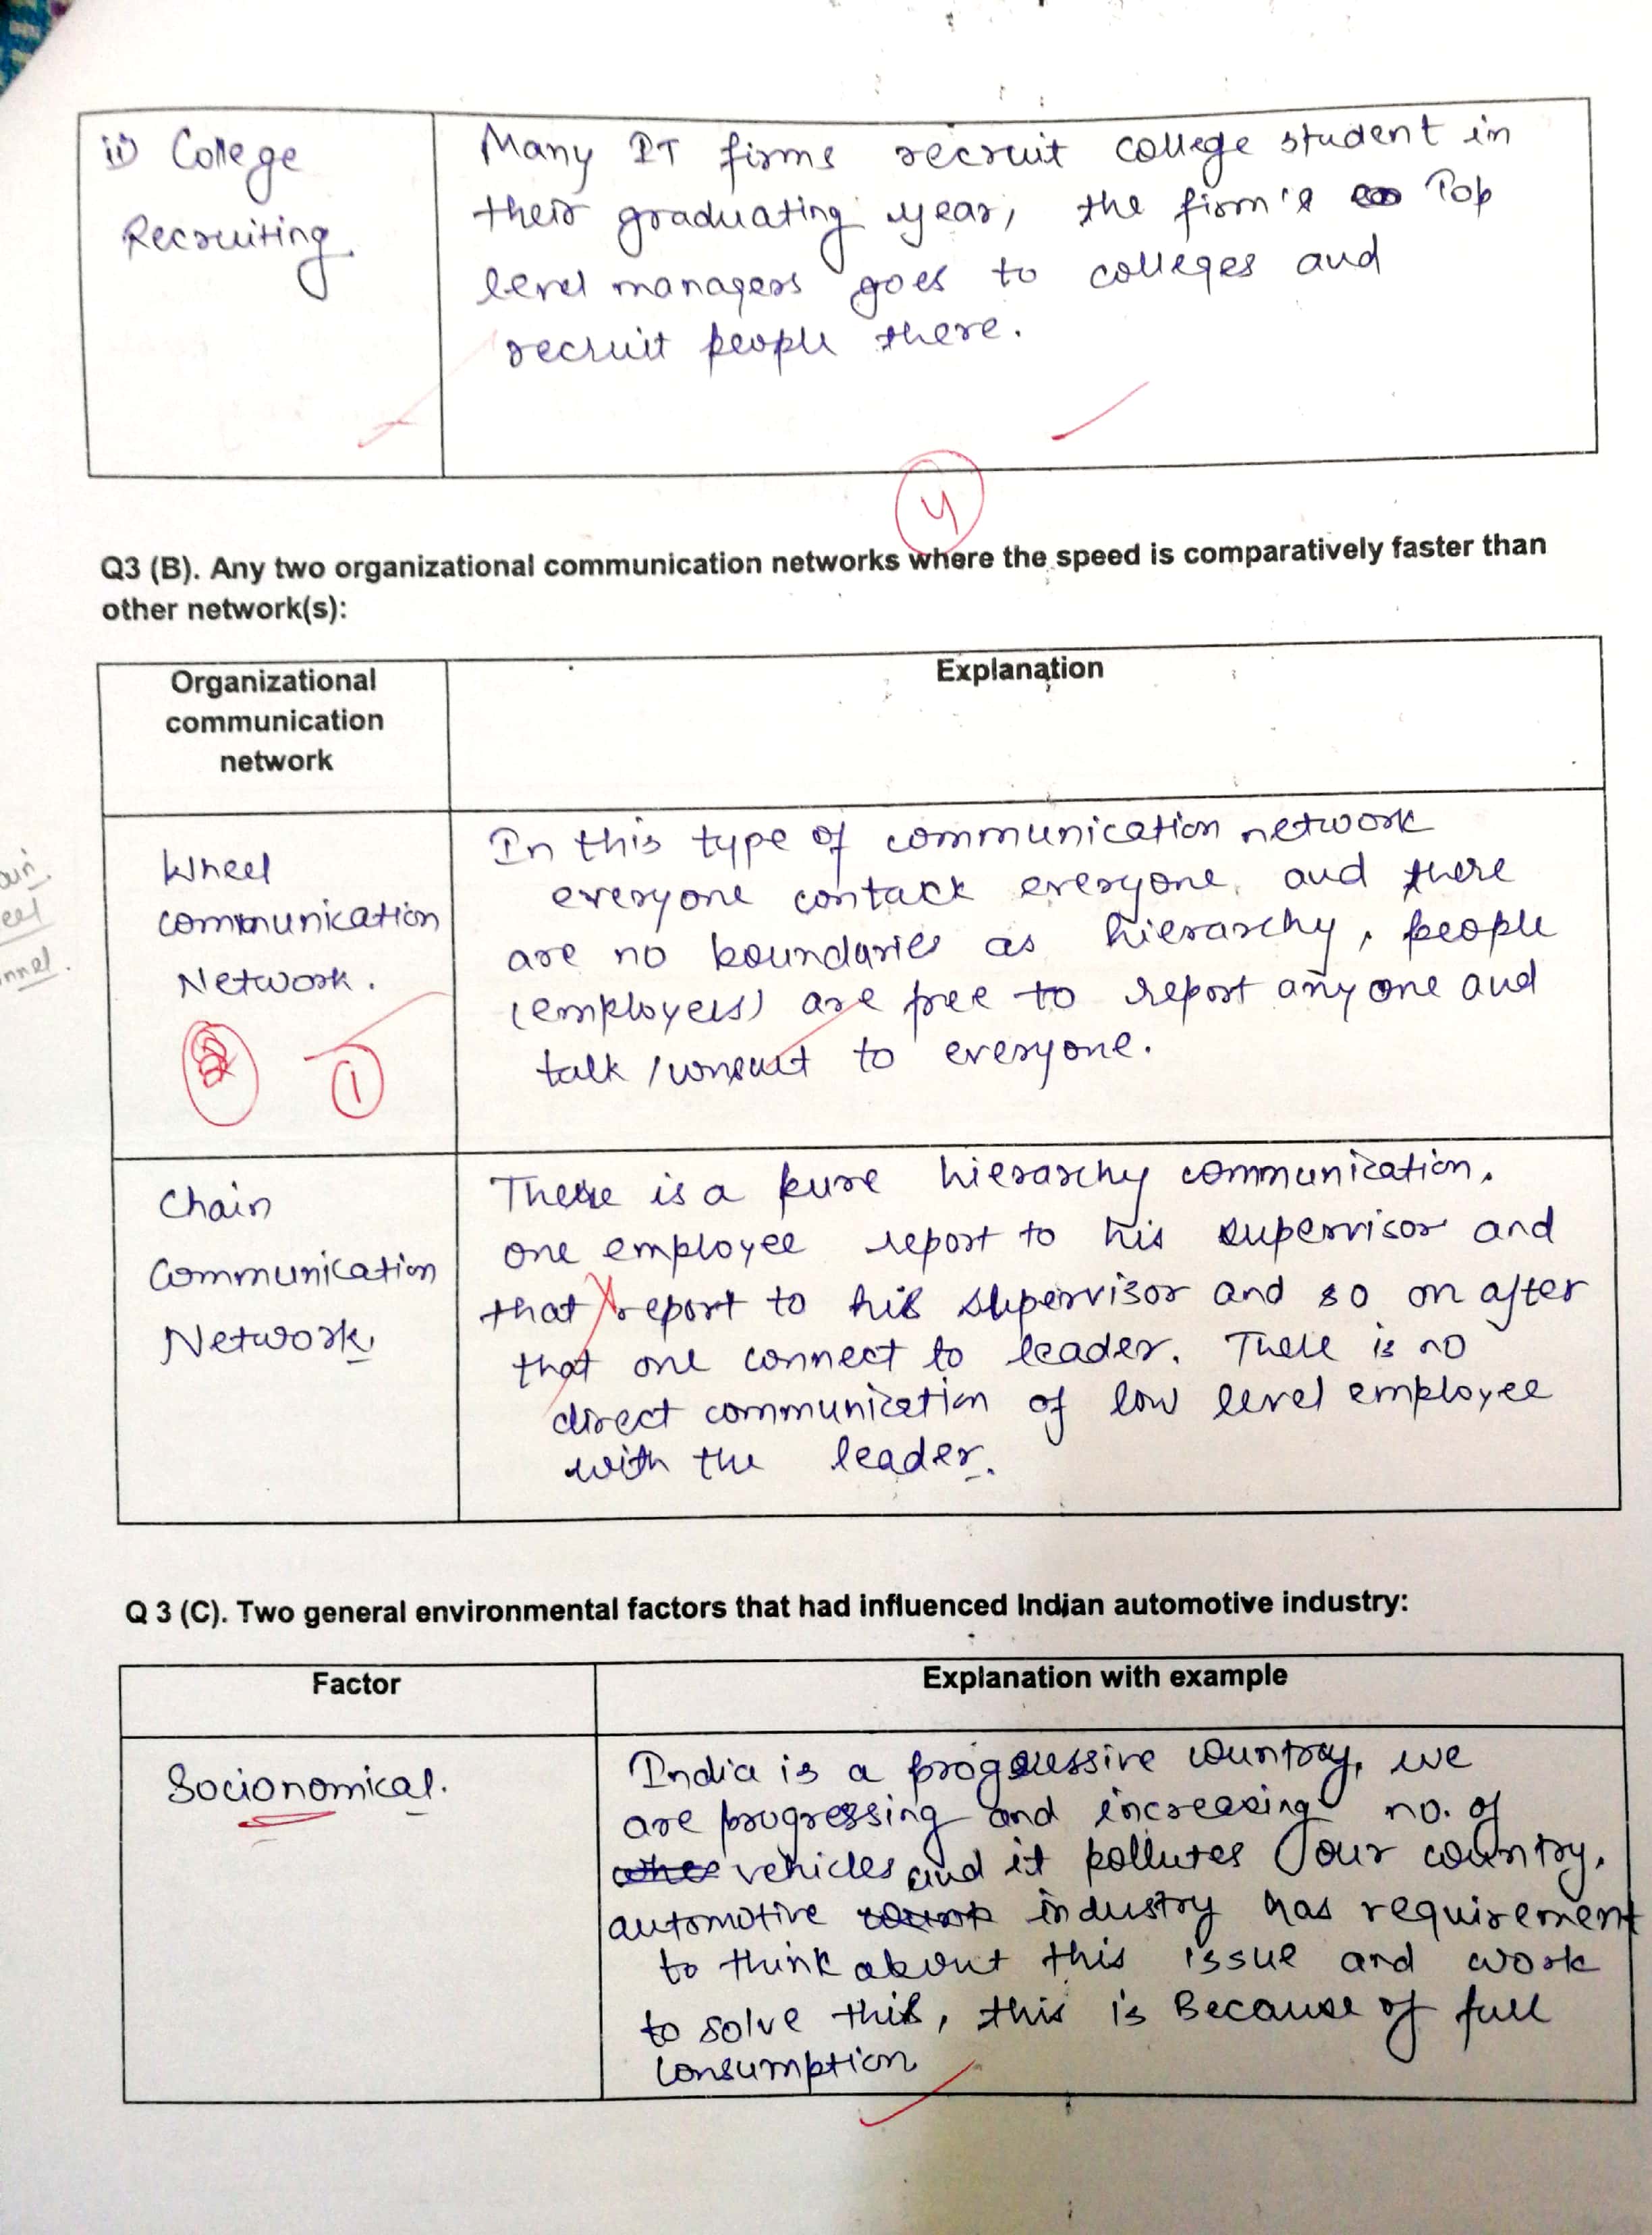 ii) College
Recruiting.
Many IT firms recruit college student in
their graduating year, the firm's Top
level managers goes to colleges and
recruit people there.
4
Q3 (B). Any two organizational communication networks where the speed is comparatively faster than
other network(s):
Organizational
communication
network
Explanation
Wheel
communication
Network.
1
In this type of communication network
everyone contack everyone, and there
are no boundaries as hierarchy, people
(employees) are free to report anyone and
talk /consult to everyone.
Chain
Communication
Network.
There is a pure hierarchy communication.
one employee report to his supervisor and
that report to his supervisor and so on after
that one connect to leader. There is no
direct communication of low level employee
with the leader.
Q 3 (C). Two general environmental factors that had influenced Indian automotive industry:
Factor
Explanation with example
Socionomical.
India is a progressive country, we
are progressing and increasing no. of
vehicles and it pollutes our country.
automotive industry has requirement
to think about this issue and work
to solve this, this is Because of full
consumption